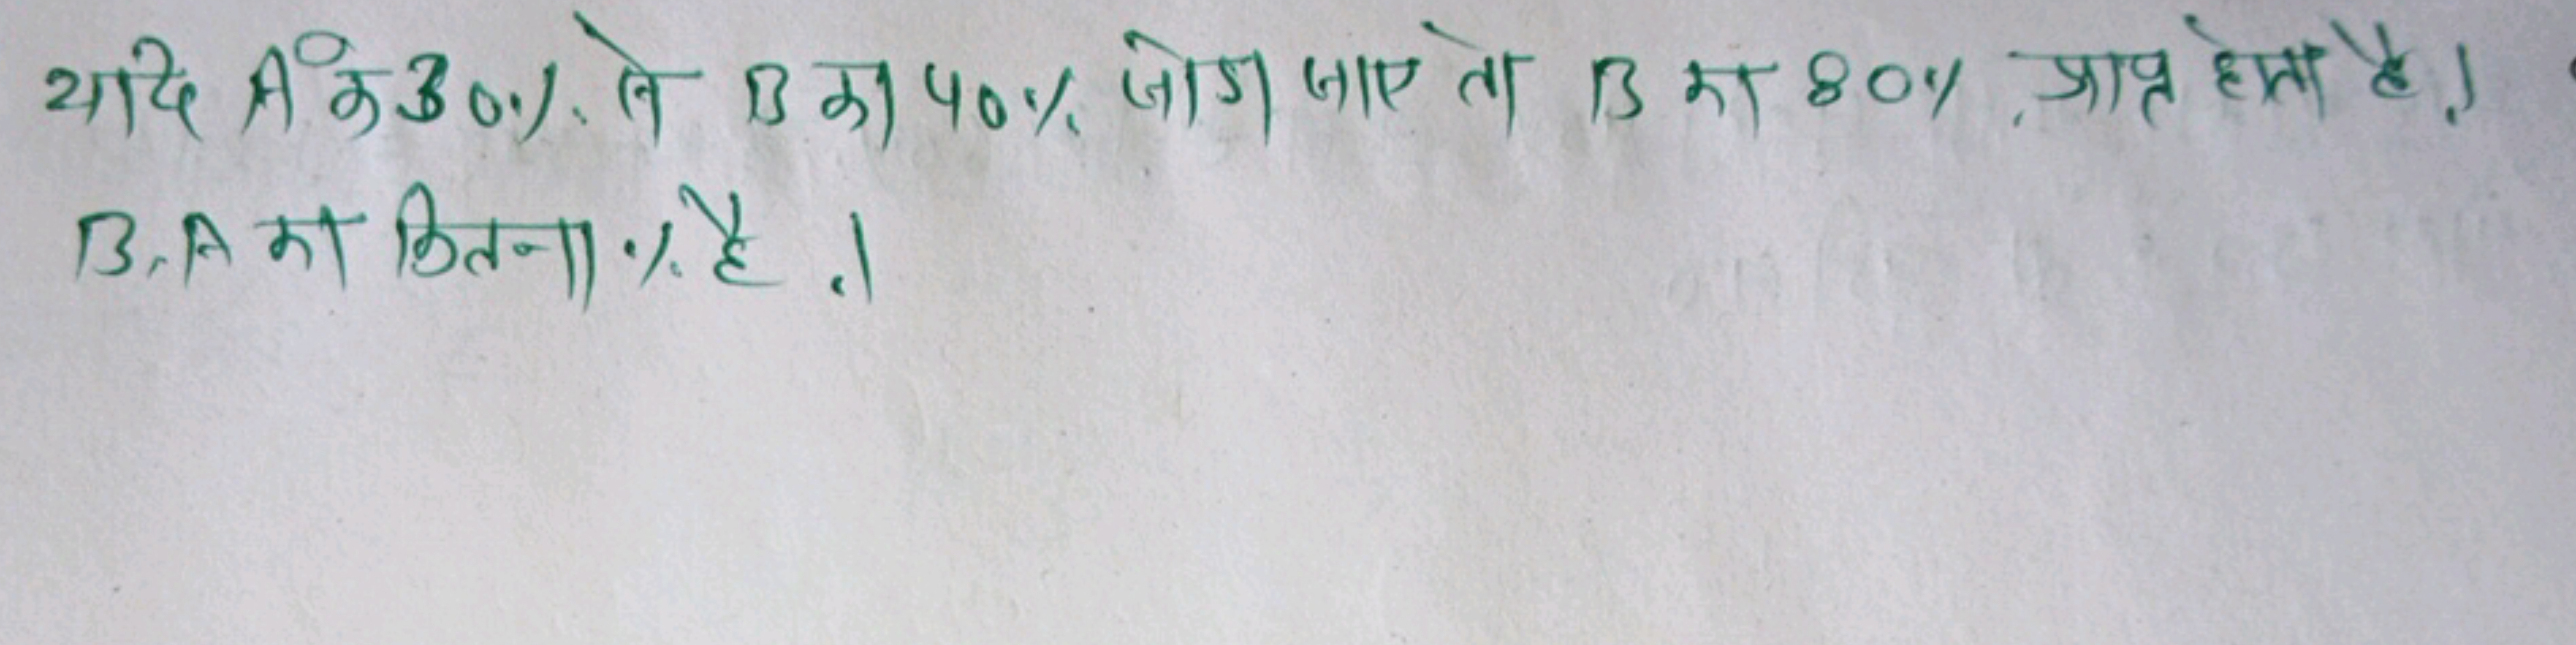 यदि A के 30% में B का 40% जोडा जाए तो B का 80% प्राप्त होता है।
B, A का कितना % है।